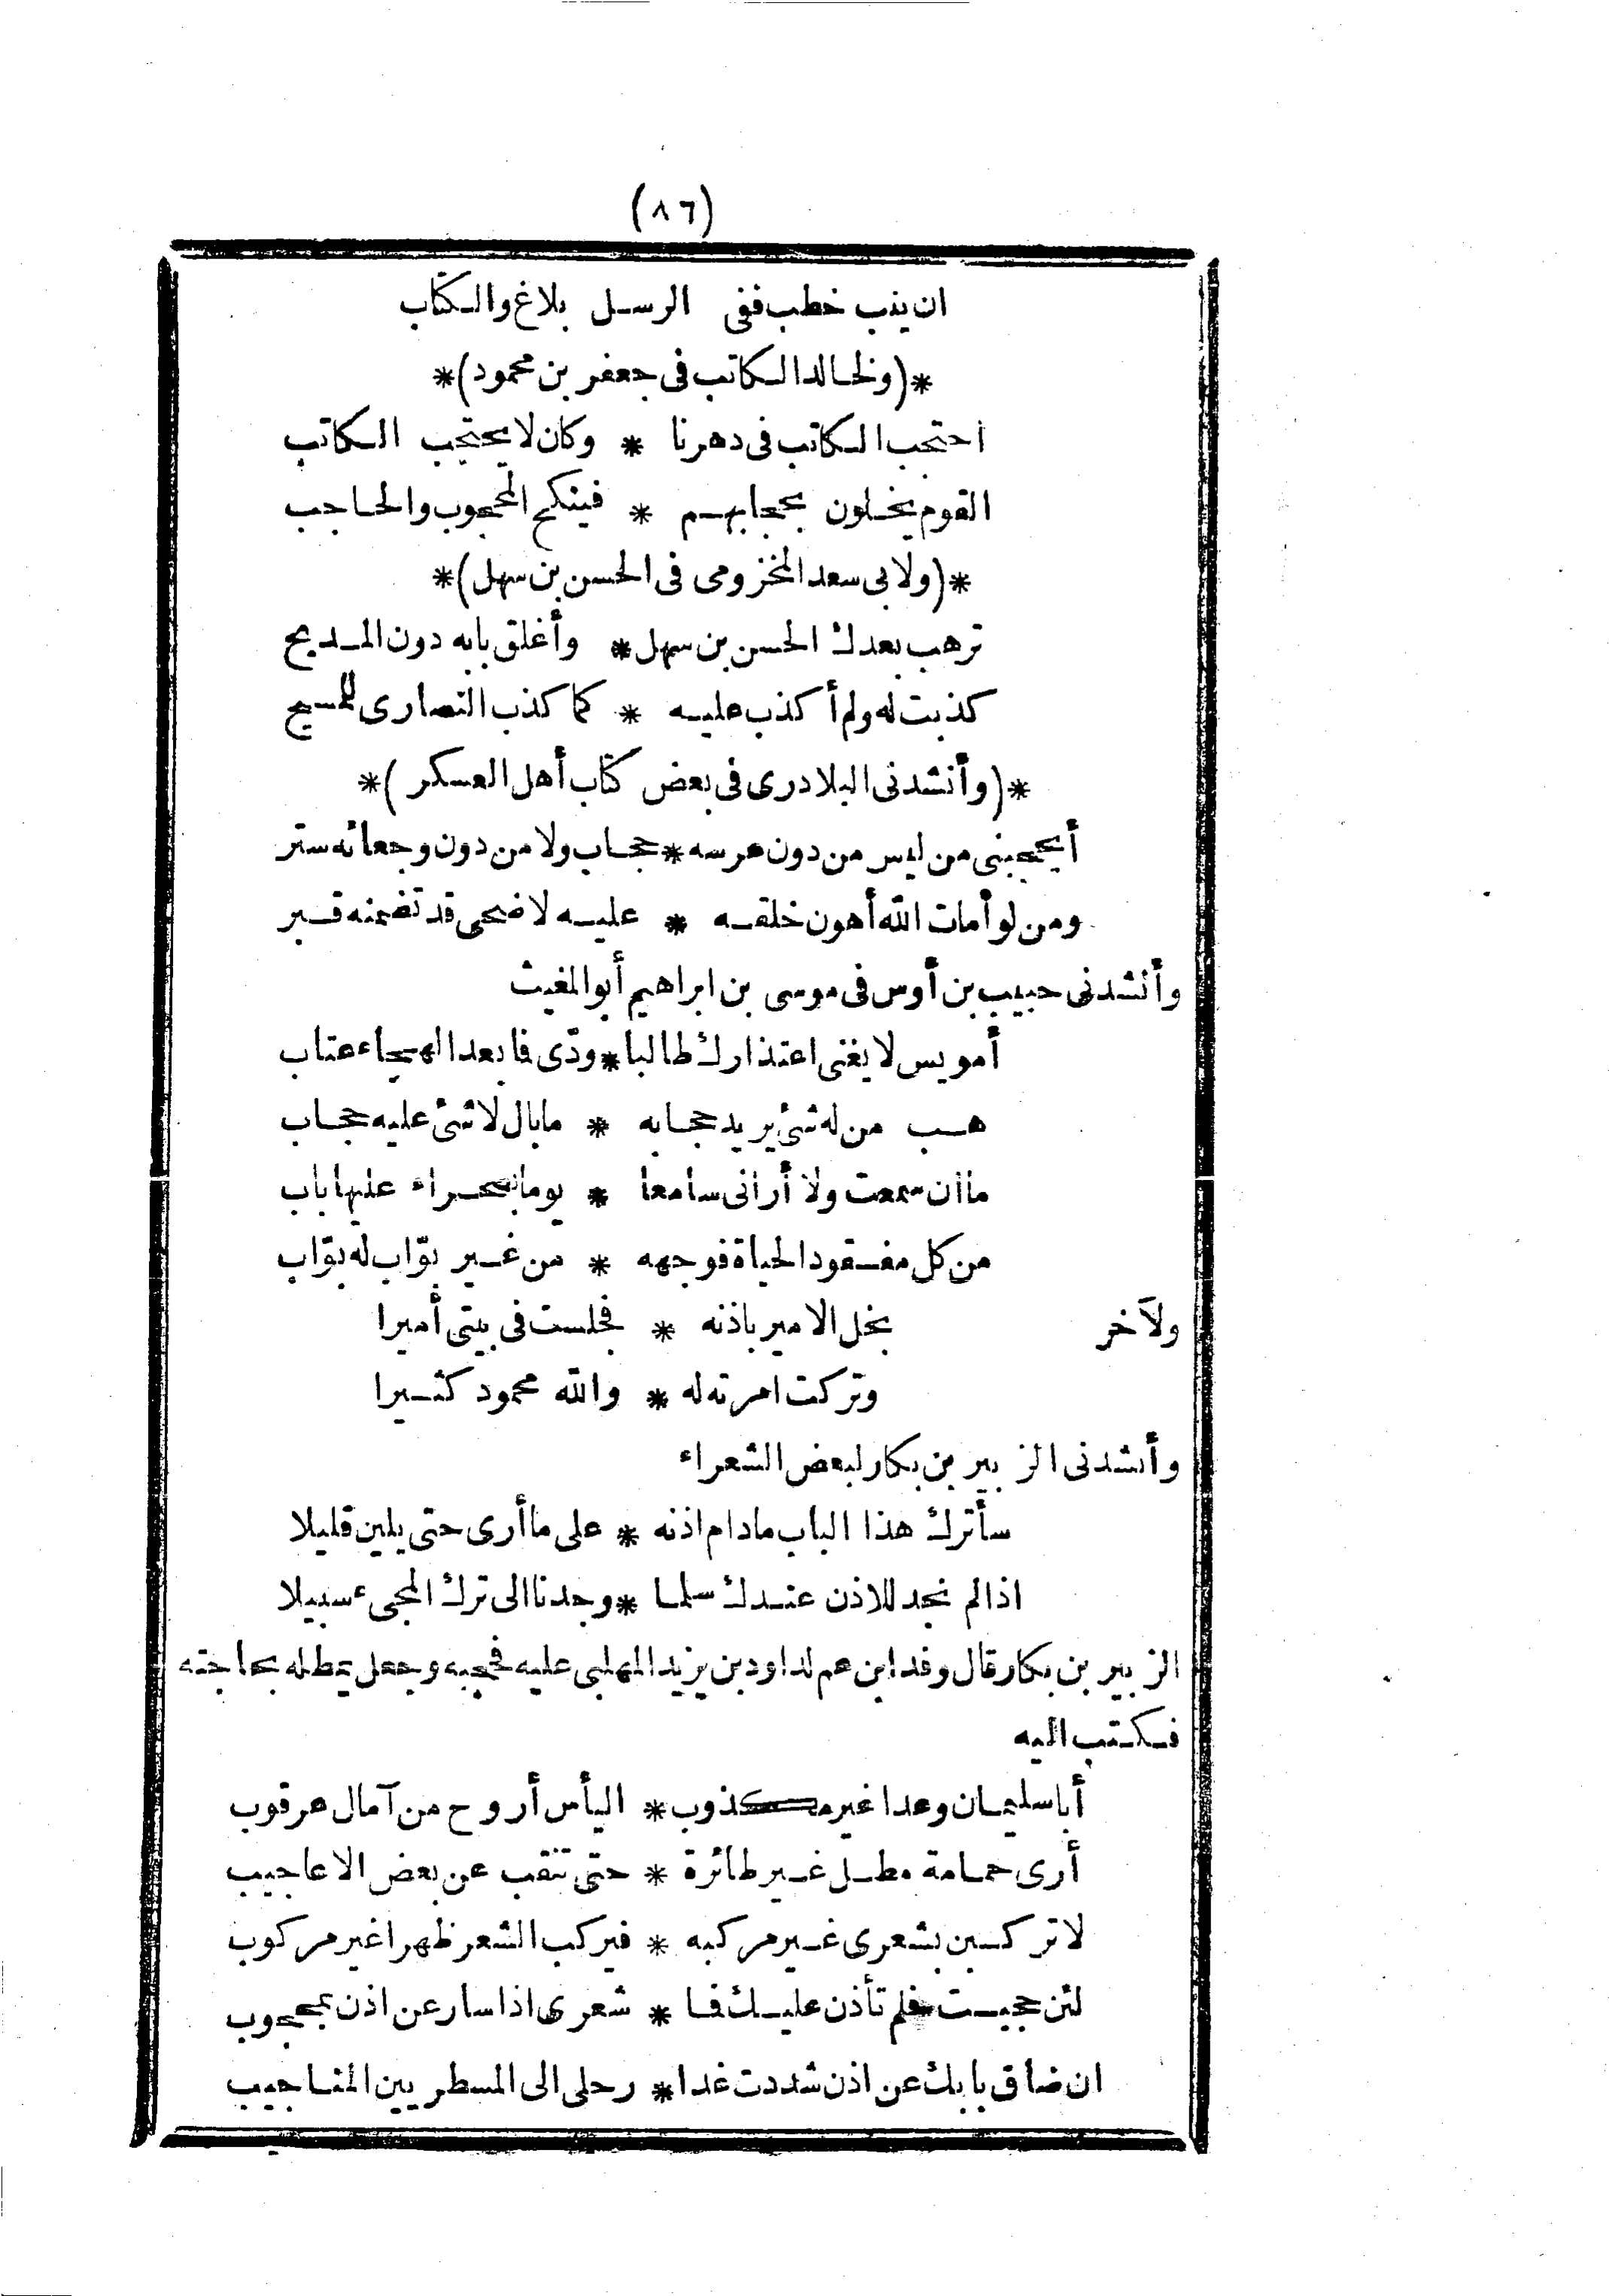 (٨٦)
ان ينب خطب ففى الرسل بلاغ والكتاب
*(ولخالد الكاتب فى جعفر بن محمود)*
احتجب الكاتب فى دهرنا * وكان لا يحتجب الكاتب
القوم يخلون بحجابهم * فينكح المحجوب والحاجب
*(ولابى سعد المخزومى فى الحسن بن سهل)*
ترهب بعدك الحسن بن سهل * وأغلق بابه دون المديح
كذبت له ولم أكذب عليه * كما كذب النصارى للمسيح
*(وأنشدنى البلادرى فى بعض كتاب أهل العسكر)*
أيحجبنى من ليس من دون عرسه * حجاب ولا من دون وجعائه ستر
ومن لو أمات الله أهون خلقه * عليه لاضحى قد تضمنه قبر
وأنشدنى حبيب بن أوس فى موسى بن ابراهيم أبو المغيث
أمويس لا يغنى اعتذارك طالبا * ودّى فما بعد الهجاء عتاب
هب من له شئ يريد حجابه * ما بال لا شئ عليه حجاب
ما ان سمعت ولا أرانى سامعا * يوما بصحراء عليها باب
من كل مفقود الحياة فوجهه * من غير بوّاب له بوّاب
ولآخر بخل الامير باذنه * فجلست فى بيتى أميرا
وتركت امرته له * والله محمود كثيرا
وأنشدنى الزبير بن بكار لبعض الشعراء
سأترك هذا الباب مادام اذنه * على ما أرى حتى يلين قليلا
اذا لم نجد للاذن عندك سلما * وجدنا الى ترك المجىء سبيلا
الزبير بن بكار قال وفد ابن عم لداود بن يزيد المهلبى عليه فحجبه وجعل يمطله بحاجته
فكتب اليه
أبا سليمان وعدا غير مكذوب * اليأس أروح من آمال عرقوب
أرى حمامة مطل غير طائرة * حتى تنقب عن بعض الاعاجيب
لا تركبن بشعرى غير مركبه * فيركب الشعر ظهرا غير مركوب
لئن حجبت فلم تأذن عليك فما * شعرى اذا سار عن اذن بمحجوب
ان ضاق بابك عن اذن شددت غدا * رحلى الى المسطر بين المناجيب